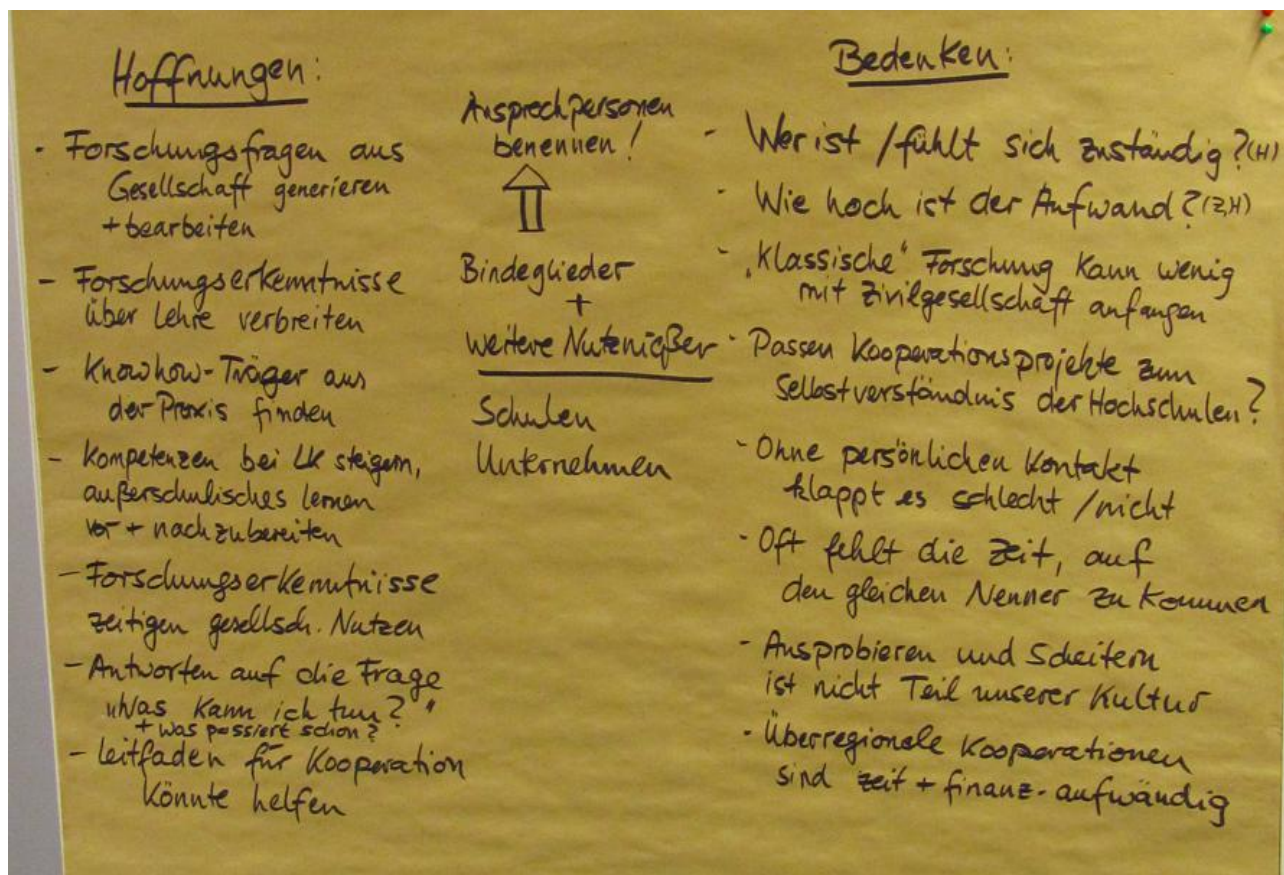 Hoffnungen:
- Forschungsfragen aus
Gesellschaft generieren
+ bearbeiten
- Forschungserkenntnisse
über Lehre verbreiten
- Knowhow-Träger aus
der Praxis finden
- Kompetenzen bei LK steigern,
außerschulisches lernen
vor + nachzubereiten
- Forschungserkenntnisse
zeitigen gesellsch. Nutzen
- Antworten auf die Frage
"Was kann ich tun?"
+ was passiert schon?
- Leitfaden für Kooperation
könnte helfen
Ansprechpersonen
benennen!
⇑
Bindeglieder
+
weitere Nutznießer
Schulen
Unternehmen
Bedenken:
- Wer ist / fühlt sich zuständig? (H)
- Wie hoch ist der Aufwand? (Z,H)
- „Klassische" Forschung kann wenig
mit Zivilgesellschaft anfangen
- Passen Kooperationsprojekte zum
Selbstverständnis der Hochschulen?
- Ohne persönlichen Kontakt
klappt es schlecht / nicht
- Oft fehlt die Zeit, auf
den gleichen Nenner zu kommen
- Ausprobieren und Scheitern
ist nicht Teil unserer Kultur
- Überregionale Kooperationen
sind zeit + finanz-aufwändig